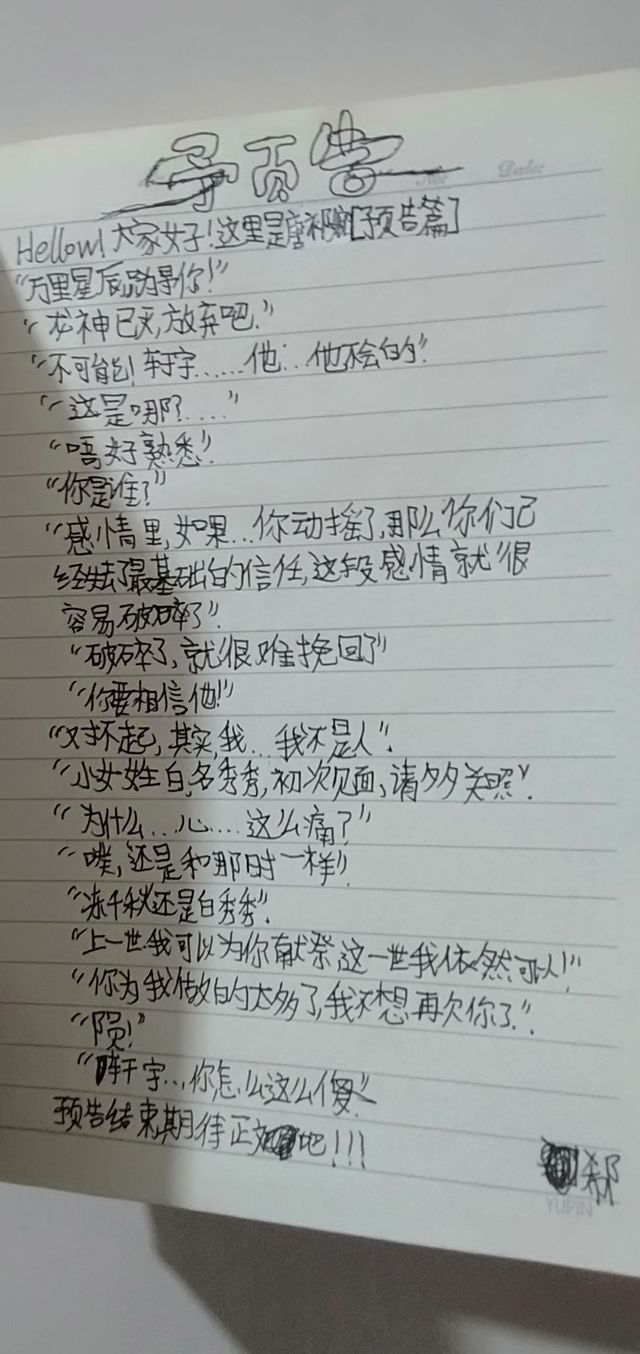 预告
No:
Date:
Hellow!大家好!这里是[预告篇]
"万里星辰,皆是你!"
"龙神已灭,放弃吧."
"不可能!轩宇……他…他不会的"!
"这是哪?…."
"唔好熟悉"!
"你是谁?"
"感情里,如果…你动摇了,那么你们已
经失去了最基础的信任,这段感情就很
容易破碎了".
"破碎了,就很难挽回了"
"你要相信他!"
"对不起,其实,我…我不是人".
"小女姓白,名秀秀,初次见面,请多多关照".
"为什么…心….这么痛?"
"噗,还是和那时一样"!
"冻千秋还是白秀秀".
"上一世我可以为你献祭这一世我依然可以!"
"你为我做的太多了,我不想再欠你了".
"陨!"
"轩宇…,你怎么这么傻"
预告结束期待正文吧!!!
YUPIN